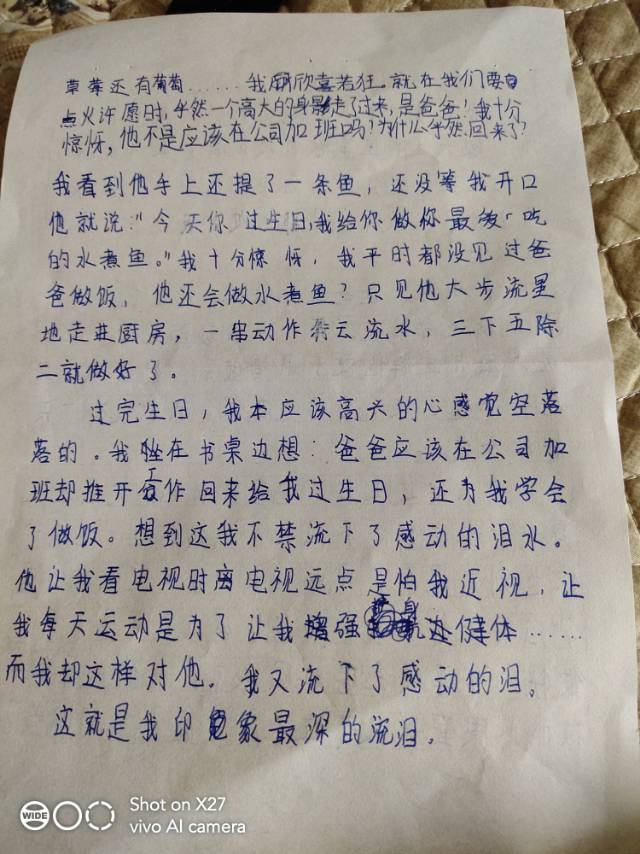 草莓还有葡萄……我欣喜若狂。就在我们要
点火许愿时,乎然一个高大的身影走了过来,是爸爸!我十分
惊怀,他不是应该在公司加班吗?为什么乎然回来了?
我看到他手上还提了一条鱼,还没等我开口
他就说:“今天你过生日,我给你做你最爱吃
的水煮鱼。”我十分惊怀,我平时都没见过爸
爸做饭,他还会做水煮鱼?只见他大步流星
地走进厨房,一串动作行云流水,三下五除
二就做好了。
过完生日,我本应该高兴的心感觉空落
落的。我坐在书桌边想:爸爸应该在公司加
班却推开工作回来给我过生日,还为我学会
了做饭。想到这我不禁流下了感动的泪水。
他让我看电视时离电视远点是怕我近视,让
我每天运动是为了让我增强身健体……
而我却这样对他。我又流下了感动的泪。
这就是我印象最深的流泪。
WIDE
Shot on X27
vivo AI camera